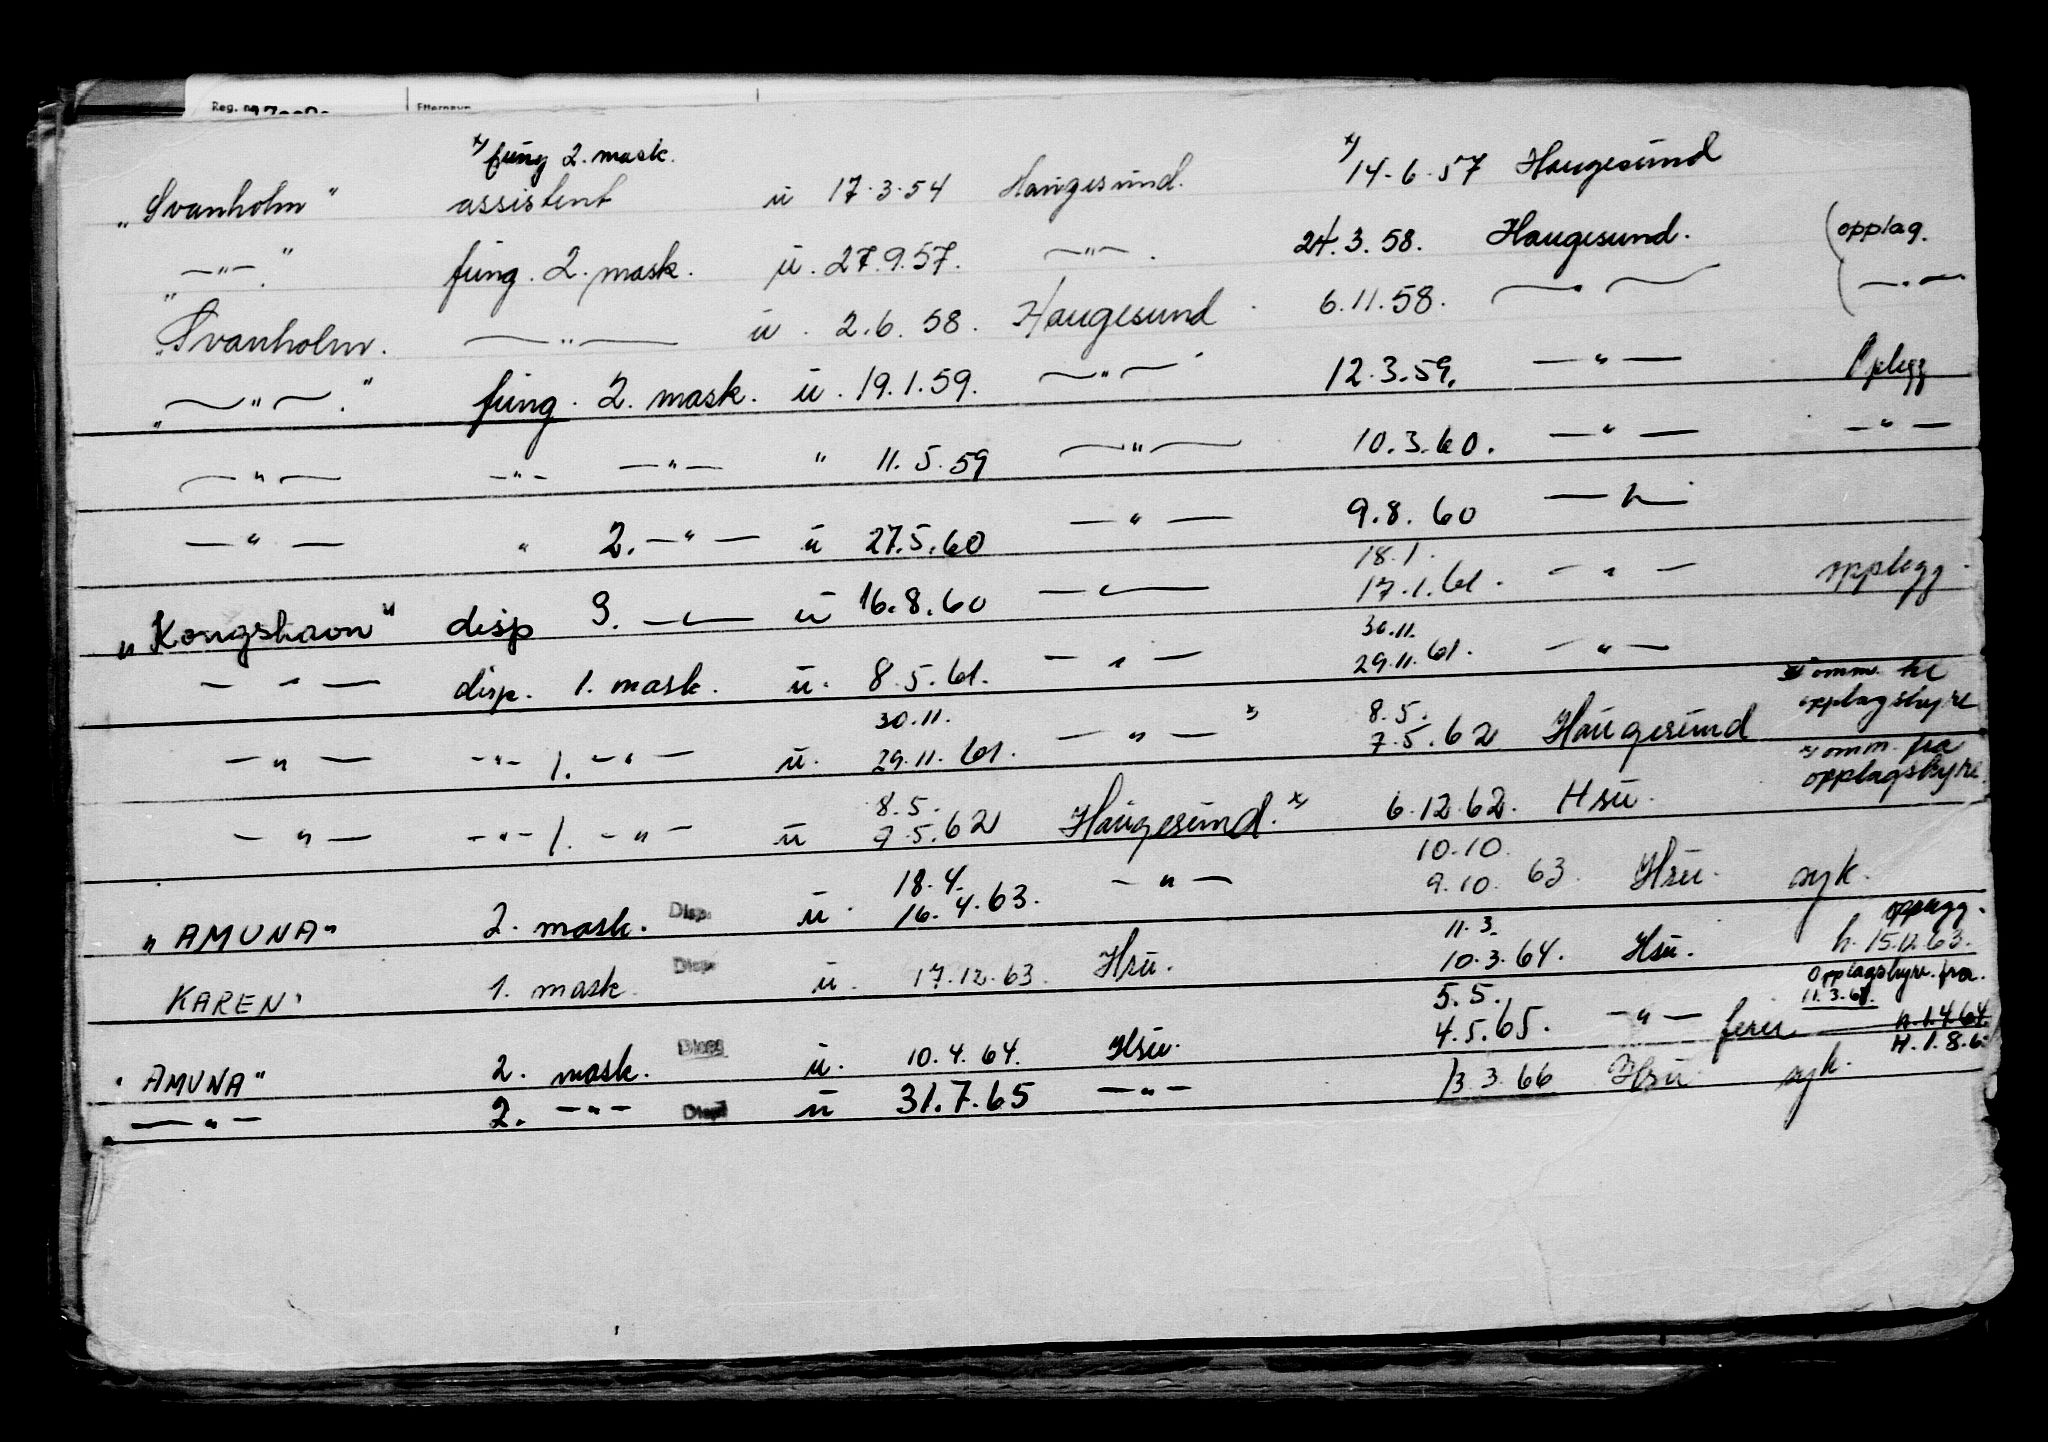 Reg. nr. Etternavn
x) fung 2. mask.
„Svanholm" assistent u 17.3.54 Haugesund. x) 14-6.57 Haugesund
„ —"— " fung. 2. mask. u. 27.9.57. —"—. 24.3.58. Haugesund. (opplag.
„Svanholm. —"— u. 2.6.58. Haugesund. 6.11.58. —"— (—"—
„ —"—." fung. 2. mask. u. 19.1.59. —"— 12.3.59. —"— Oplegg
—"— —"— —"— " 11.5.59 —"— 10.3.60. —"— —"—
—"— " 2. —"— u 27.5.60 —"— 9.8.60 —"—
18.1.
„Kongshavn" disp 3. —"— u 16.8.60 —"— 17.1.61. —"— opplegg.
30.11.
— " — disp. 1. mask. u. 8.5.61. — " — 29.11.61. —"— x) omm. til
30.11. 8.5. opplagshyre
—"— —"— 1. —"— u. 29.11.61. —"— x) 7.5.62 Haugesund x) omm. fra
8.5. opplagshyre.
—"— —"— 1. —"— u 7.5.62 Haugesund. x) 6.12.62. Hsu.
18.4. 10.10.
„AMUNA" 2. mask. Disp. u. 16.4.63. —"— 9.10.63. Hsu. syk.
11.3. opplegg.
KAREN" 1. mask. Disp. u. 17.12.63. Hsu. 10.3.64. Hsu. h. 15.12.63.
5.5. Opplagshyre. fra.
11.3.64.
"AMUNA" 2. mask. u. 10.4.64. Hsu. 4.5.65. —"— ferie h. 1.4.64.
H. 1.8.6
—"— 2. —"— Disp u 31.7.65 —"— 13.3.66 Hsu syk.